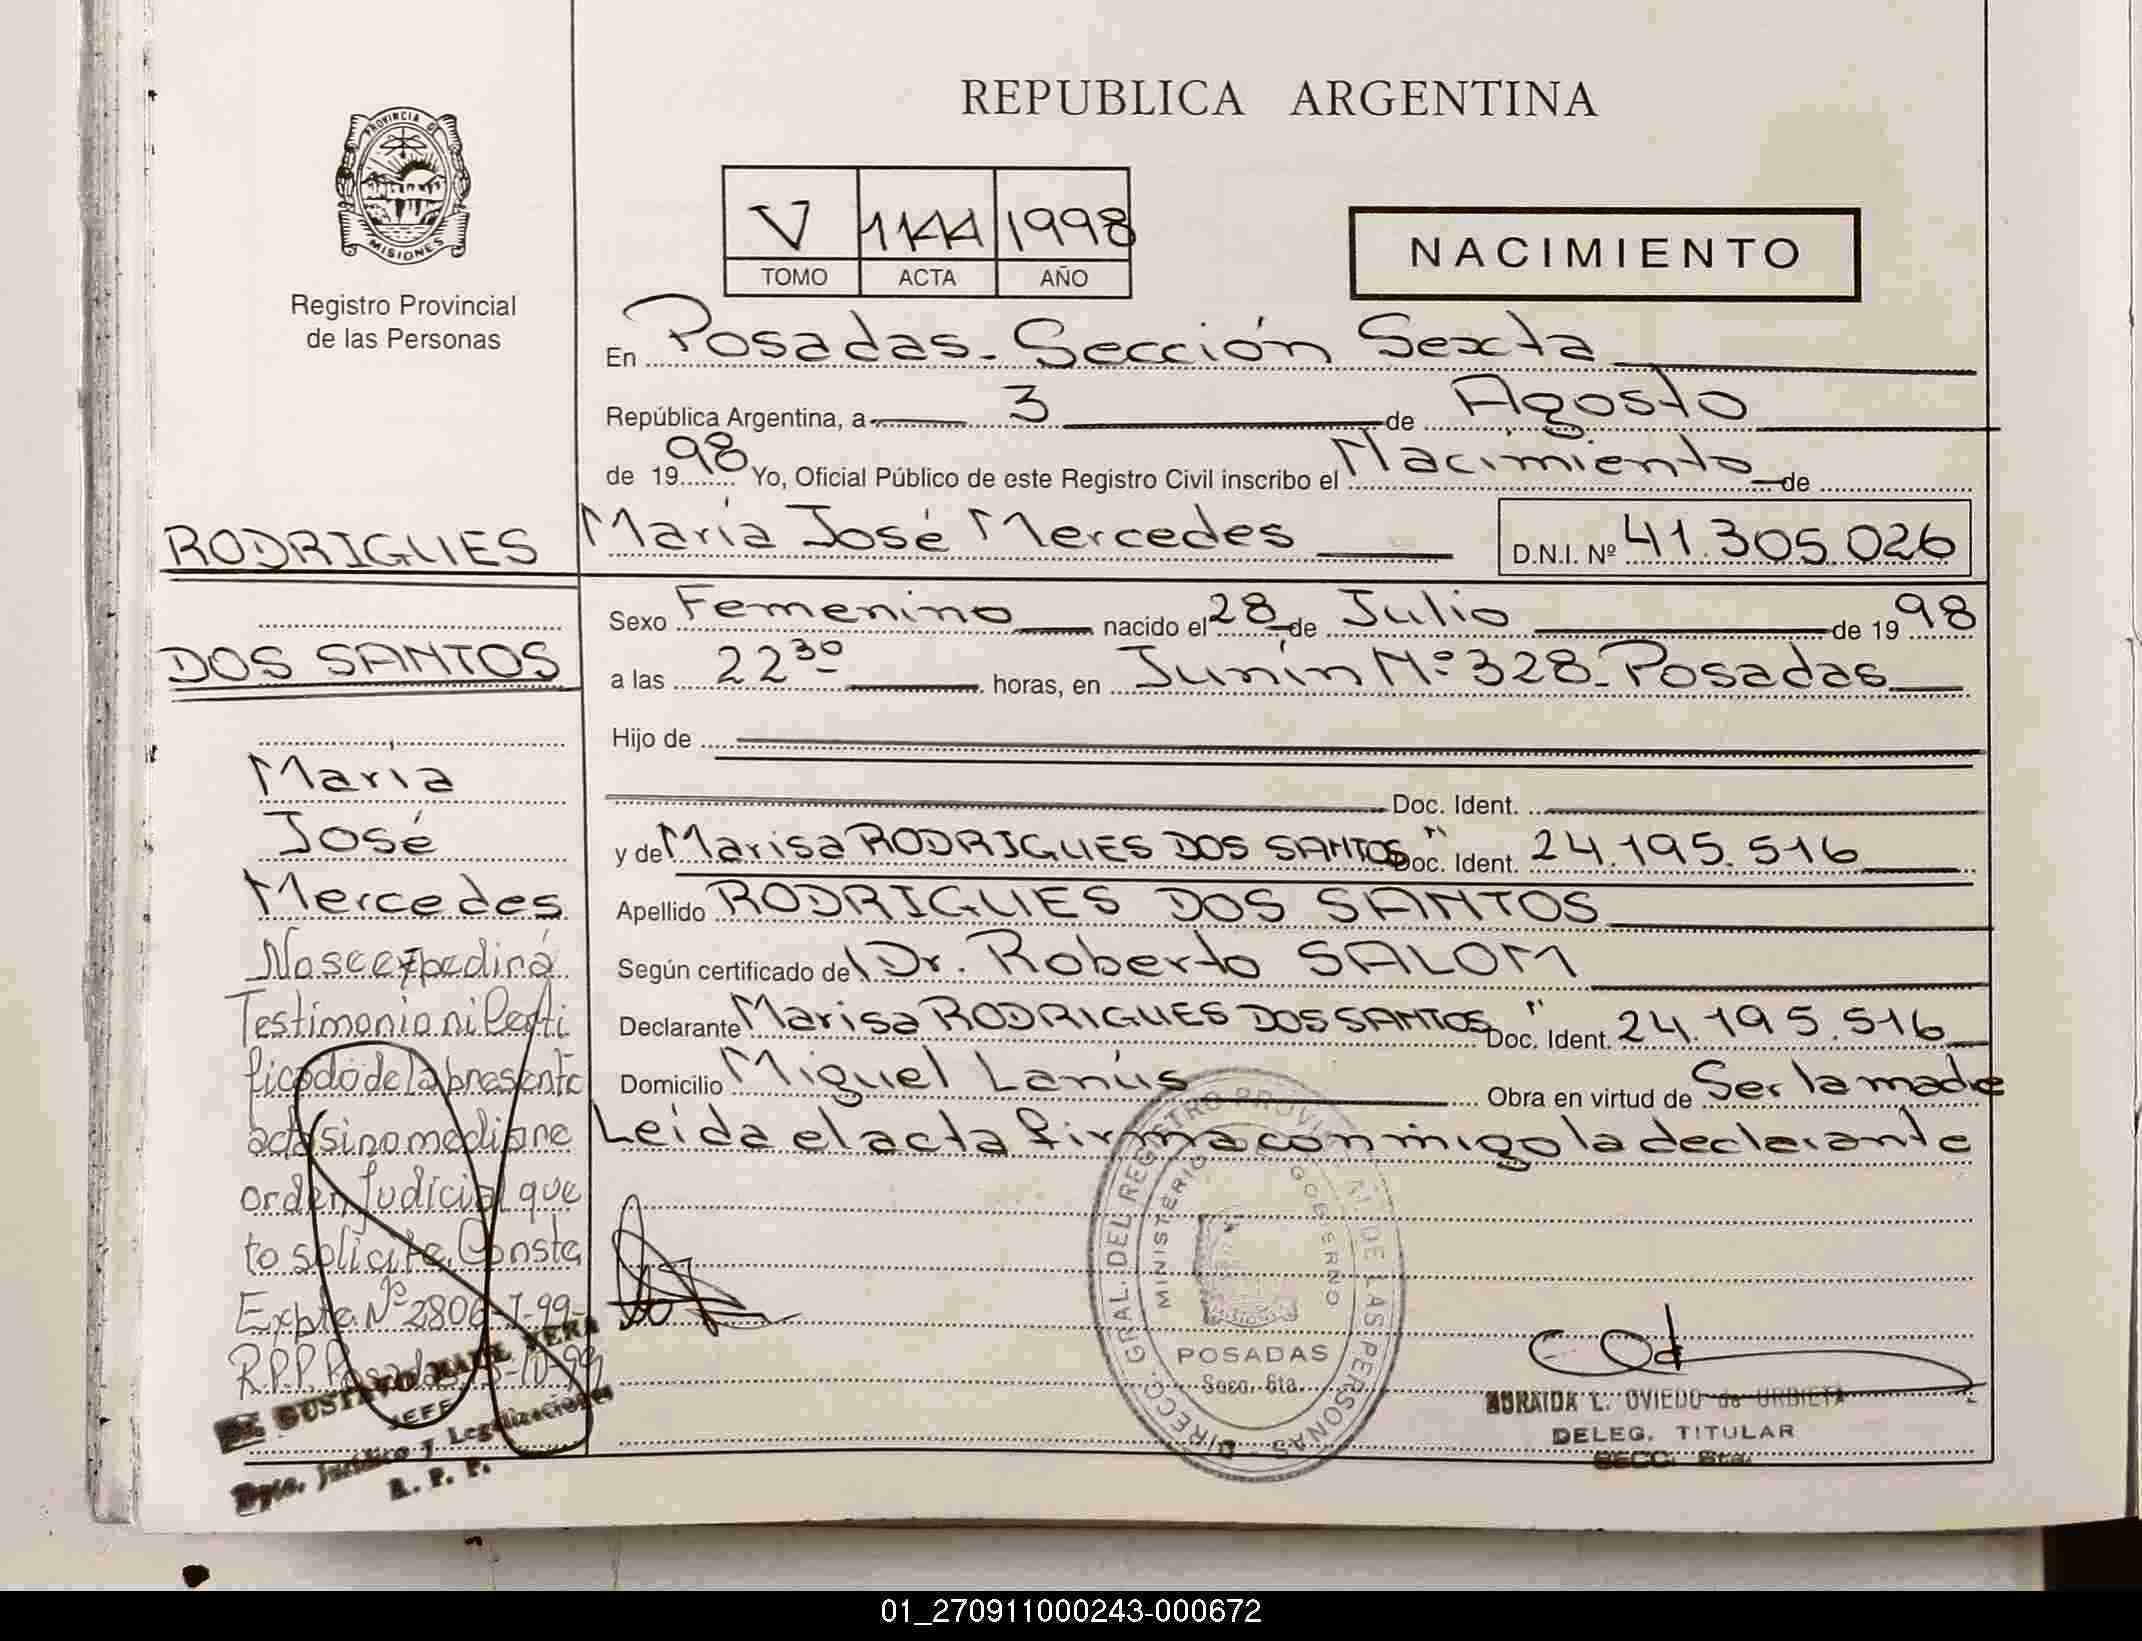 REPUBLICA ARGENTINA
PROVINCIA DE
MISIONES
Registro Provincial
de las Personas
V 1144 1998
TOMO ACTA AÑO
NACIMIENTO
En Posadas. Sección Sexta
República Argentina, a 3 de Agosto
de 1998 Yo, Oficial Público de este Registro Civil inscribo el Nacimiento de
María José Mercedes D.N.I. Nº 41.305.026
Sexo Femenino nacido el 28 de Julio de 1998
a las 22 30 horas, en Junín Nº 328. Posadas
Hijo de
Doc. Ident.
y de Marisa RODRIGUES DOS SANTOS " Doc. Ident. 24.195.516
Apellido RODRIGUES DOS SANTOS
Según certificado del Dr. Roberto SALOM
Declarante Marisa RODRIGUES DOS SANTOS " Doc. Ident. 24.195.516
Domicilio Miguel Lanús Obra en virtud de Ser la madre
Leída el acta firma conmigo la declarante
RODRIGUES
DOS SANTOS
María
José
Mercedes
No se expedirá
Testimonio ni Certi
ficado de la presente
acta sino mediane
orden Judicial que
to solicite. Consta
Expte Nº 2806-7-99-
R.P.P. Posadas -10-99
GUSTAVO VERA
JEFE
Dpto. Jurídico y Legalizaciones
R. P. P.
DIRECC. GRAL. DEL REGISTRO PROVINCIAL DE LAS PERSONAS
MINISTERIO GOBIERNO
POSADAS
Secc. 6ta.
L. OVIEDO de URBIETA
DELEG. TITULAR
SECC. 6ta.
01_270911000243-000672